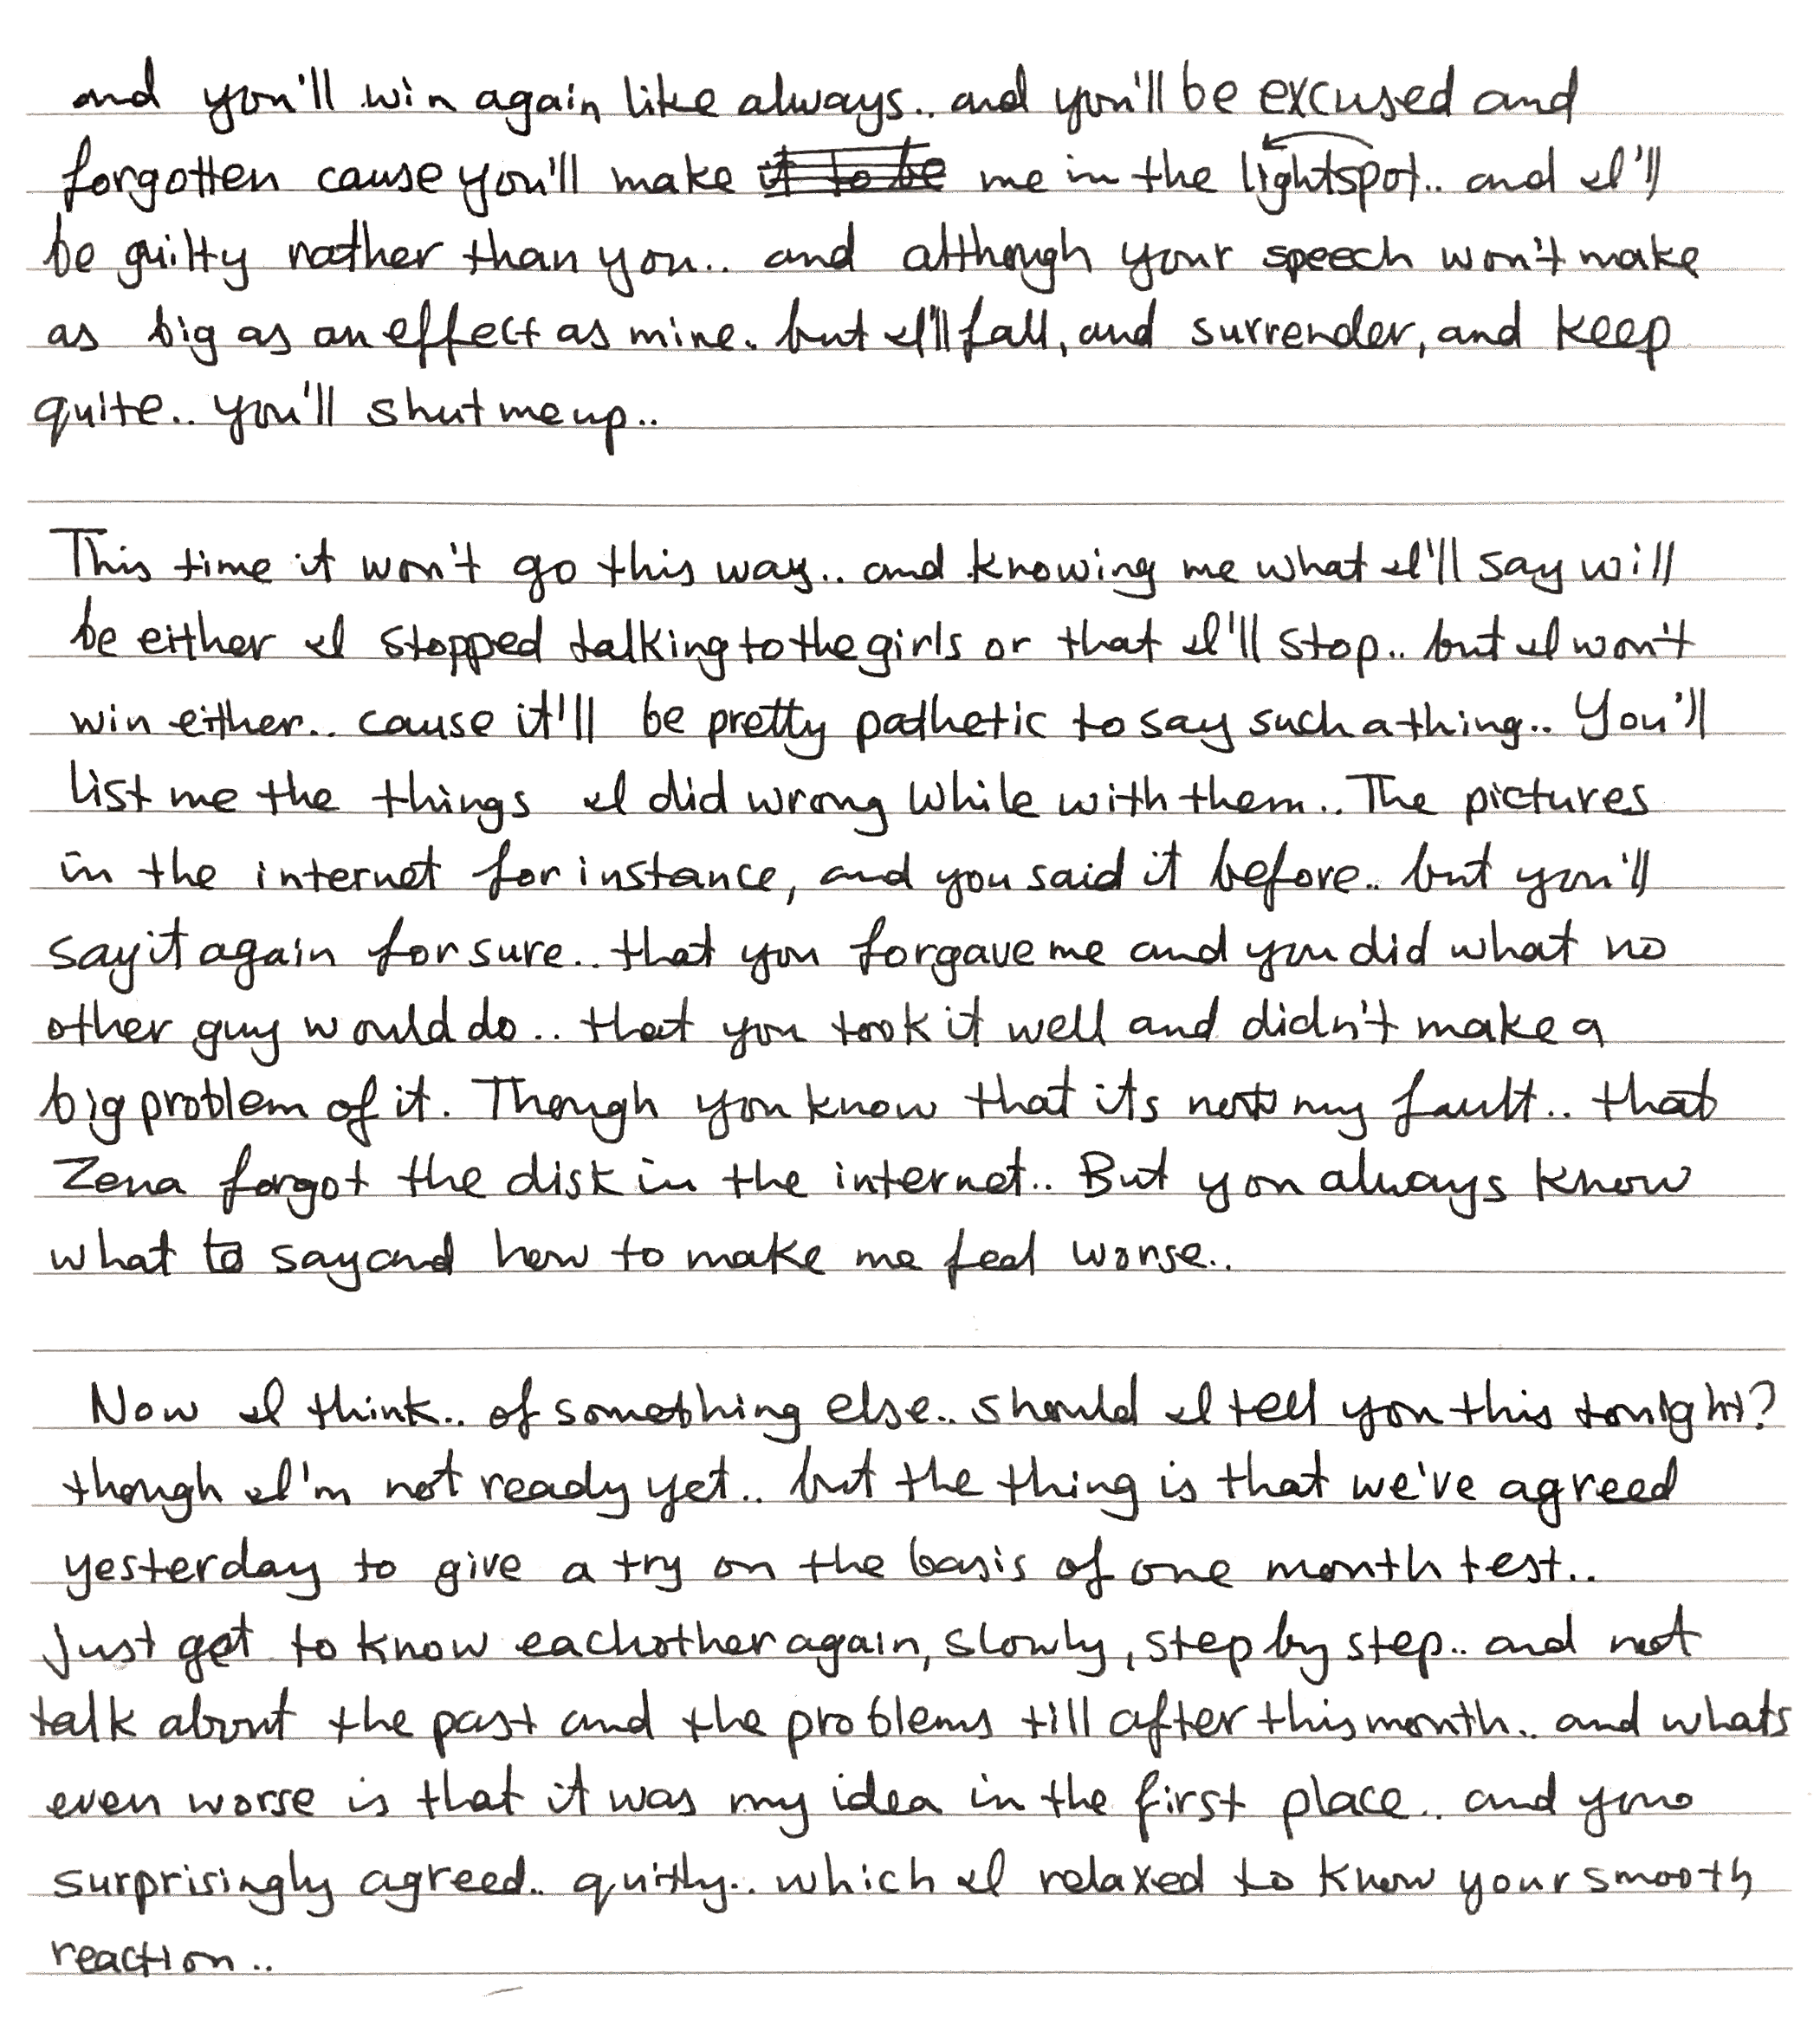 and you'll win again like always.. and you'll be excused and
forgotten cause you'll make it to be me in the lightspot.. and I'll
be guilty rather than you.. and although your speech won't make
as big as an effect as mine. but I'll fall, and surrender, and keep
quite.. you'll shut me up..
This time it won't go this way.. and knowing me what I'll say will
be either I stopped talking to the girls or that I'll stop.. but I won't
win either.. cause it'll be pretty pathetic to say such a thing.. You'll
list me the things I did wrong while with them.. The pictures
in the internet for instance, and you said it before.. but you'll
say it again for sure.. that you forgave me and you did what no
other guy would do.. that you took it well and didn't make a
big problem of it. Though you know that its not my fault.. that
Zena forgot the disk in the internet.. But you always know
what to say and how to make me feel worse..
Now I think.. of something else.. should I tell you this tonight?
though I'm not ready yet.. but the thing is that we've agreed
yesterday to give a try on the basis of one month test..
just get to know eachother again, slowly, step by step.. and not
talk about the past and the problems till after this month.. and whats
even worse is that it was my idea in the first place.. and you
surprisingly agreed.. quitly.. which I relaxed to know your smooth
reaction..